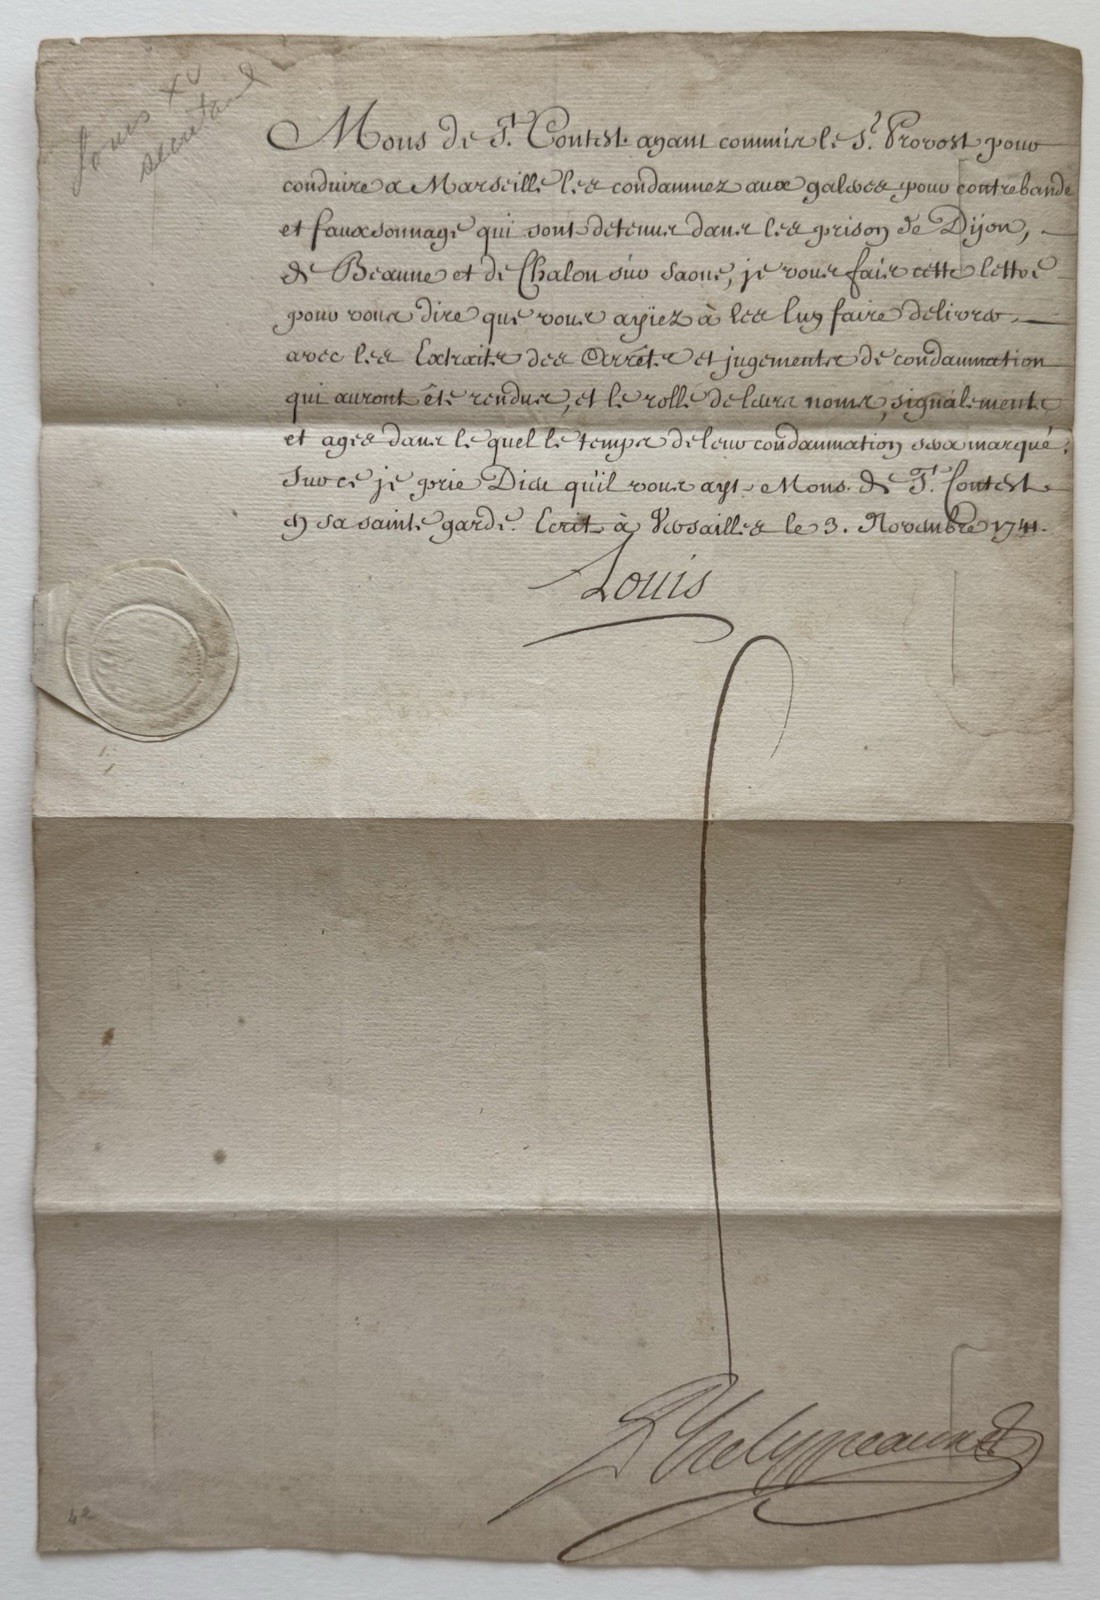 Louis XV
secretary
Mons de St. Contest ayant commis le Sr. Provost pour
conduire a Marseille les condamnez aux galeres pour contrebande
et fauxsonnage qui sont detenus dans les prison de Dijon,
de Beaune et de Chalon sur Saone, je vous fais cette lettre
pour vous dire que vous ayiez à les luy faire delivrer,
avec les Extraits des Arrêts et jugements de condamnation
qui auront été rendus, et le rolle de leurs noms, signalements
et ages dans lequel le temps de leur condamnation sera marqué.
Sur ce je prie Dieu qu'il vous ayt Mons. de St. Contest
en sa sainte garde. Ecrit à Versailles le 3. Novembre 1741.
Louis
Phelypeaux